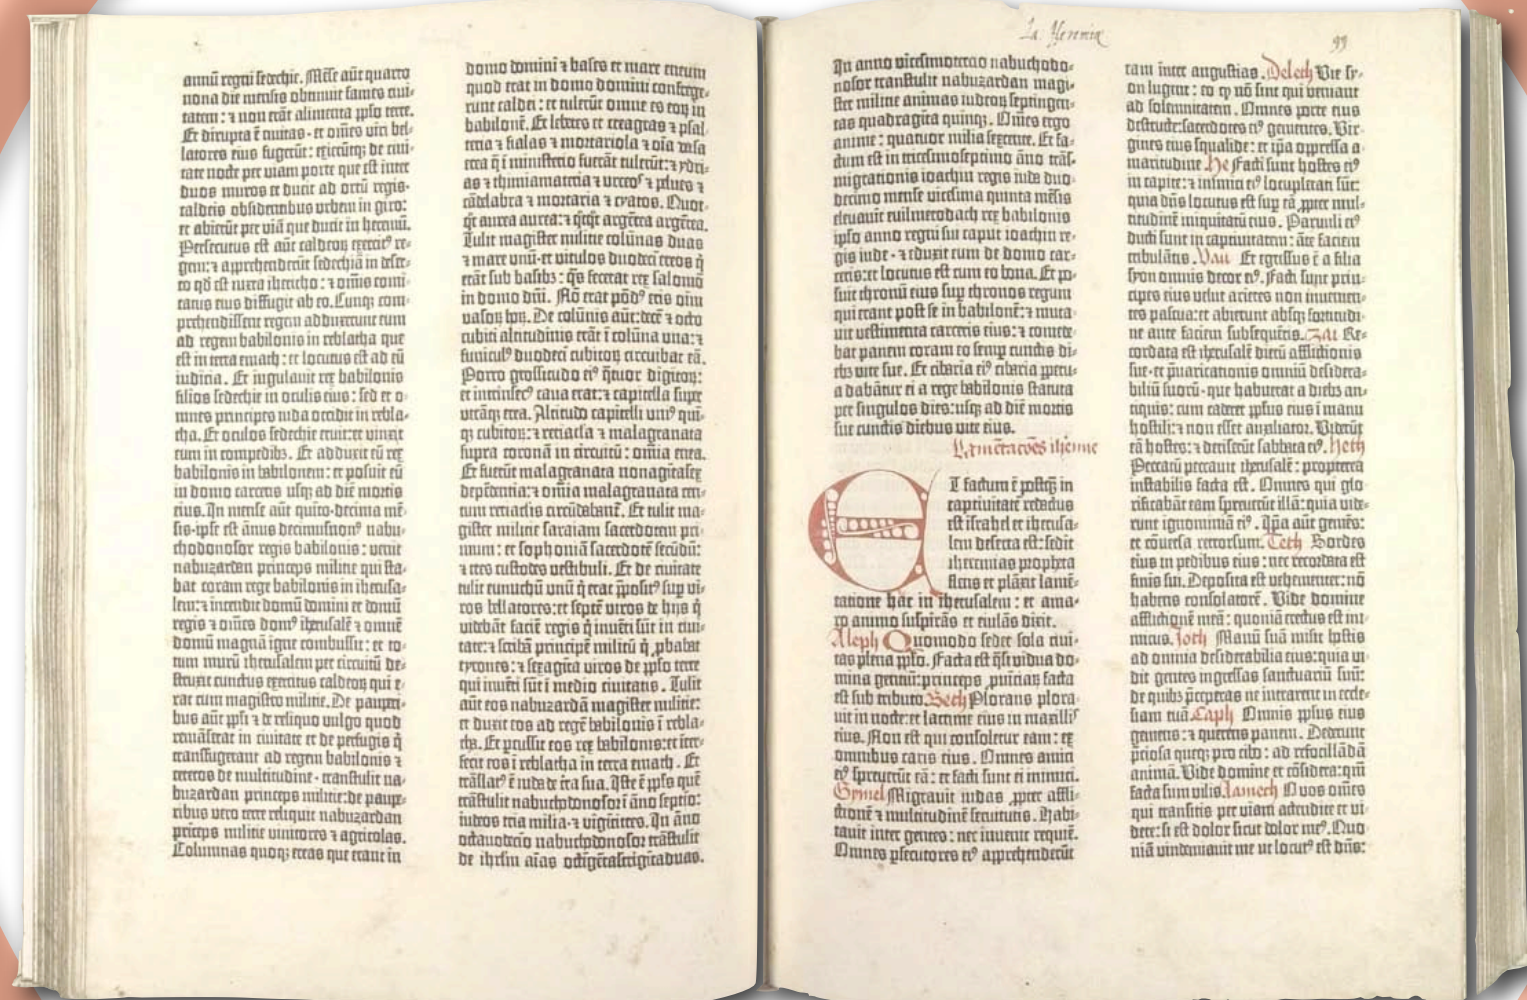 annū regni sedechie. Mēse aūt quarto
nona die mensis obtinuit fames ciui-
tatem: ⁊ non erāt alimenta pplo terre.
Et dirupta ē ciuitas · et om̄es viri bel-
latores eius fugerūt: exierūtq; de ciui-
tate nocte per viam porte que est inter
duos muros et ducit ad ortū regis·
caldeis obsidentibus urbem in giro:
et abierūt per viā que ducit in heremū.
Persecutus est aūt caldeoꝝ exercitꝰ re-
gem: ⁊ apprehenderūt sedechiā in deser-
to qd̄ est iuxta ihericho : ⁊ om̄is comi-
tatus eius diffugit ab eo. Cunq; com-
prehendissent regem adduxerunt eum
ad regem babilonis in reblatha que
est in terra emath : et locutus est ad eū
iudicia. Et iugulauit rex babilonis
filios sedechie in oculis eius : sed et o-
mnes principes iuda occidit in rebla-
tha. Et oculos sedechie eruit: et vinxit
eum in compedibꝫ. Et adduxit eū rex
babilonis in babilonem: et posuit eū
in domo carceris usq; ad diē mortis
eius. In mense aūt quīto·decima mē-
sis·ipse est ānus decimusnonꝰ nabu-
chodonosor regis babilonis : venit
nabuzardan princeps militie qui sta-
bat coram rege babilonis in iherusa-
lem: ⁊ incendit domū domini et domū
regis ⁊ om̄es domꝰ iherusalē ⁊ omnē
domū magnā igne combussit : et to-
tum murū iherusalem per circuitū de-
struxit cunctus exercitus caldeoꝝ qui e-
rat cum magistro militie. De pauperi-
bus aūt ppli ⁊ de reliquo vulgo quod
remāserat in ciuitate et de perfugis q̄
transfugerant ad regem babilonis ⁊
ceteros de multitudine · transtulit na-
buzardan princeps militie: de paupe-
ribus vero terre reliquit nabuzardan
prīceps militie vinitores ⁊ agricolas.
Columnas quoq; ereas que erant in
domo domini ⁊ bases et mare eneum
quod erat in domo domini confrege-
runt caldei : et tulerūt omne es eoꝝ in
babilonē. Et lebetes et creagras ⁊ psal-
teria ⁊ fialas ⁊ mortariola ⁊ oīa vasa
erea q̄ ī ministerio fuerāt tulerūt: ⁊ ydri-
as ⁊ thimiamateria ⁊ urceos ⁊ pelues ⁊
cādelabra ⁊ mortaria ⁊ cyatos. Quot-
q̄t aurea aurea: ⁊ q̄tq̄t argētea argētea.
Tulit magister militie colūnas duas
⁊ mare unū·et vitulos duodecī ereos q̄
erāt sub basibꝫ: q̄s fecerat rex salomō
in domo dn̄i. Nō erat pōdꝰ eris oīm
vasoꝝ hoꝝ. De colūnis aūt: decē ⁊ octo
cubiti altitudinis erāt ī colūna una: ⁊
funiculꝰ duodecī cubitoꝝ circuibat eā.
Porro grossitudo eiꝰ q̄tuor digitoꝝ:
et intrinsecꝰ caua erat: ⁊ capitella supre
utrāq; erea. Altitudo capitelli uniꝰ quī-
q; cubitoꝝ: ⁊ retiacla ⁊ malagranata
supra coronā in circuitū : omīa erea.
Et fuerūt malagranata nonagītasex
depēdentia: ⁊ omīa malagranata cen-
tum retiaclis circūdabant. Et tulit ma-
gister militie saraiam sacerdotem pri-
mum: et sophoniā sacerdotē secūdū:
⁊ tres custodes vestibuli. Et de ciuitate
tulit eunuchū unū q̄ erat ppositꝰ sup vi-
ros bellatores: et septē viros de hijs q̄
videbāt faciē regis q̄ inuēti sūt in ciui-
tate: ⁊ scribā principē militū q̄ pbabat
tyrones : ⁊ sexagīta viros de pplo terre
qui inuēti sūt ī medio ciuitatis . Tulit
aūt eos nabuzardā magister militie:
et duxit eos ad regē babilonis ī rebla-
tha. Et pcussit eos rex babilonis: et iter-
fecit eos ī reblatha in terra emath. Et
trāslatꝰ ē iuda de t̄ra sua. Iste ē pplꝰ quē
trāstulit nabuchodonosor ī āno septīo:
iudeos tria milia· ⁊ vīgītitres. In āno
octauodecīo nabuchodonosor trāstulit
de ihrl̄m aīas octīgētastrigītaduas.
La. Hieremiæ
99
In anno vicesimotercio nabuchodo-
nosor transtulit nabuzardan magi-
ster militie animas iudeoꝝ septingen-
tas quadragīta quinq;. Om̄es ergo
anime : quatuor milia sexcente. Et fa-
ctum est in tricesimoseptimo āno trās-
migrationis ioachin regis iude duo-
decimo mense vicesima quinta mēsis
eleuauit euilmerodach rex babilonis
ipso anno regni sui caput ioachin re-
gis iude · ⁊ eduxit eum de domo car-
ceris: et locutus est cum eo bona. Et po-
suit thronū eius sup thronos regum
qui erant post se in babilonē: ⁊ muta-
uit vestimenta carceris eius: ⁊ comede-
bat panem coram eo semp cunctis di-
ebꝫ vite sue. Et cibaria eiꝰ cibaria ppetu-
a dabātur ei a rege babilonis statuta
per singulos dies: usq; ad diē mortis
sue cunctis diebus vite eius.
Lamētacōes iheremie
Et factum ē postq̄ in
captiuitatē redactus
est israhel et iherusa-
lem deserta est: sedit
iheremias propheta
flens et plāxit lamē-
tatione hac in iherusalem : et ama-
ro animo suspirās et eiulās dixit.
Aleph Quomodo sedet sola ciui-
tas plena pplo. Facta est q̄si vidua do-
mina gentiū: princeps puīciaꝝ facta
est sub tributo. Beth Plorans plora-
uit in nocte: et lacrime eius in maxillꝭ
eius. Non est qui consoletur eam : ex
omnibus caris eius. Omnes amici
eiꝰ spreuerūt eā : et facti sunt ei inimici.
Gymel Migrauit iudas ppter affli-
ctionē ⁊ multitudinē seruitutis . Habi-
tauit inter gentes : nec inuenit requiē.
Omnes psecutores eiꝰ apprehenderūt
eam inter angustias . Deleth Vie sy-
on lugent : eo q̄ nō sint qui veniant
ad solemnitatem. Omnes porte eius
destructe: sacerdotes eiꝰ gementes. Vir-
gines eius squalide : et ip̄a oppressa a-
maritudine. He Facti sunt hostes eiꝰ
in capite: ⁊ inimici eiꝰ locupletati sūt:
quia dn̄s locutus est sup eā ppter mul-
titudinē iniquitatū eius. Paruuli eiꝰ
ducti sunt in captiuitatem: āte faciem
tribulātis. Vau Et egressus ē a filia
syon omnis decor eiꝰ. Facti sunt prin-
cipes eius velut arietes non inuenien-
tes pascua: et abierunt absq; fortitudi-
ne ante faciem subsequētis. Zai Re-
cordata est iherusalē dierū afflictionis
sue · et p̄uaricationis omniū desidera-
biliū suorū · que habuerat a diebꝫ an-
tiquis : cum caderet pplus eius ī manu
hostili: ⁊ non esset auxiliator. Viderūt
eā hostes: ⁊ deriserūt sabbata eiꝰ. Heth
Peccatū peccauit iherusalē : propterea
instabilis facta est . Omnes qui glo-
rificabāt eam spreuerūt illā: quia vide-
runt ignominiā eiꝰ. Ip̄a aūt gemēs:
et cōuersa retrorsum. Teth Sordes
eius in pedibus eius : nec recordata est
finis sui. Deposita est vehementer: nō
habens consolatorē. Vide domine
afflictionē meā: quoniā erectus est ini-
micus. Joth Manū suā misit hostis
ad omnia desiderabilia eius: quia vi-
dit gentes ingressas sanctuariū suū:
de quibꝫ p̄ceperas ne intrarent in eccle-
siam tuā. Caph Omnis pplus eius
gemens: ⁊ querens panem. Dederunt
p̄ciosa queq; pro cibo : ad refocillādā
animā. Vide domine et cōsidera: qm̄
facta sum vilis. Lamech O vos om̄es
qui transitis per viam attendite et vi-
dete: si est dolor sicut dolor meꝰ. Quo-
niā vindemiauit me ut locutꝰ est dn̄s: